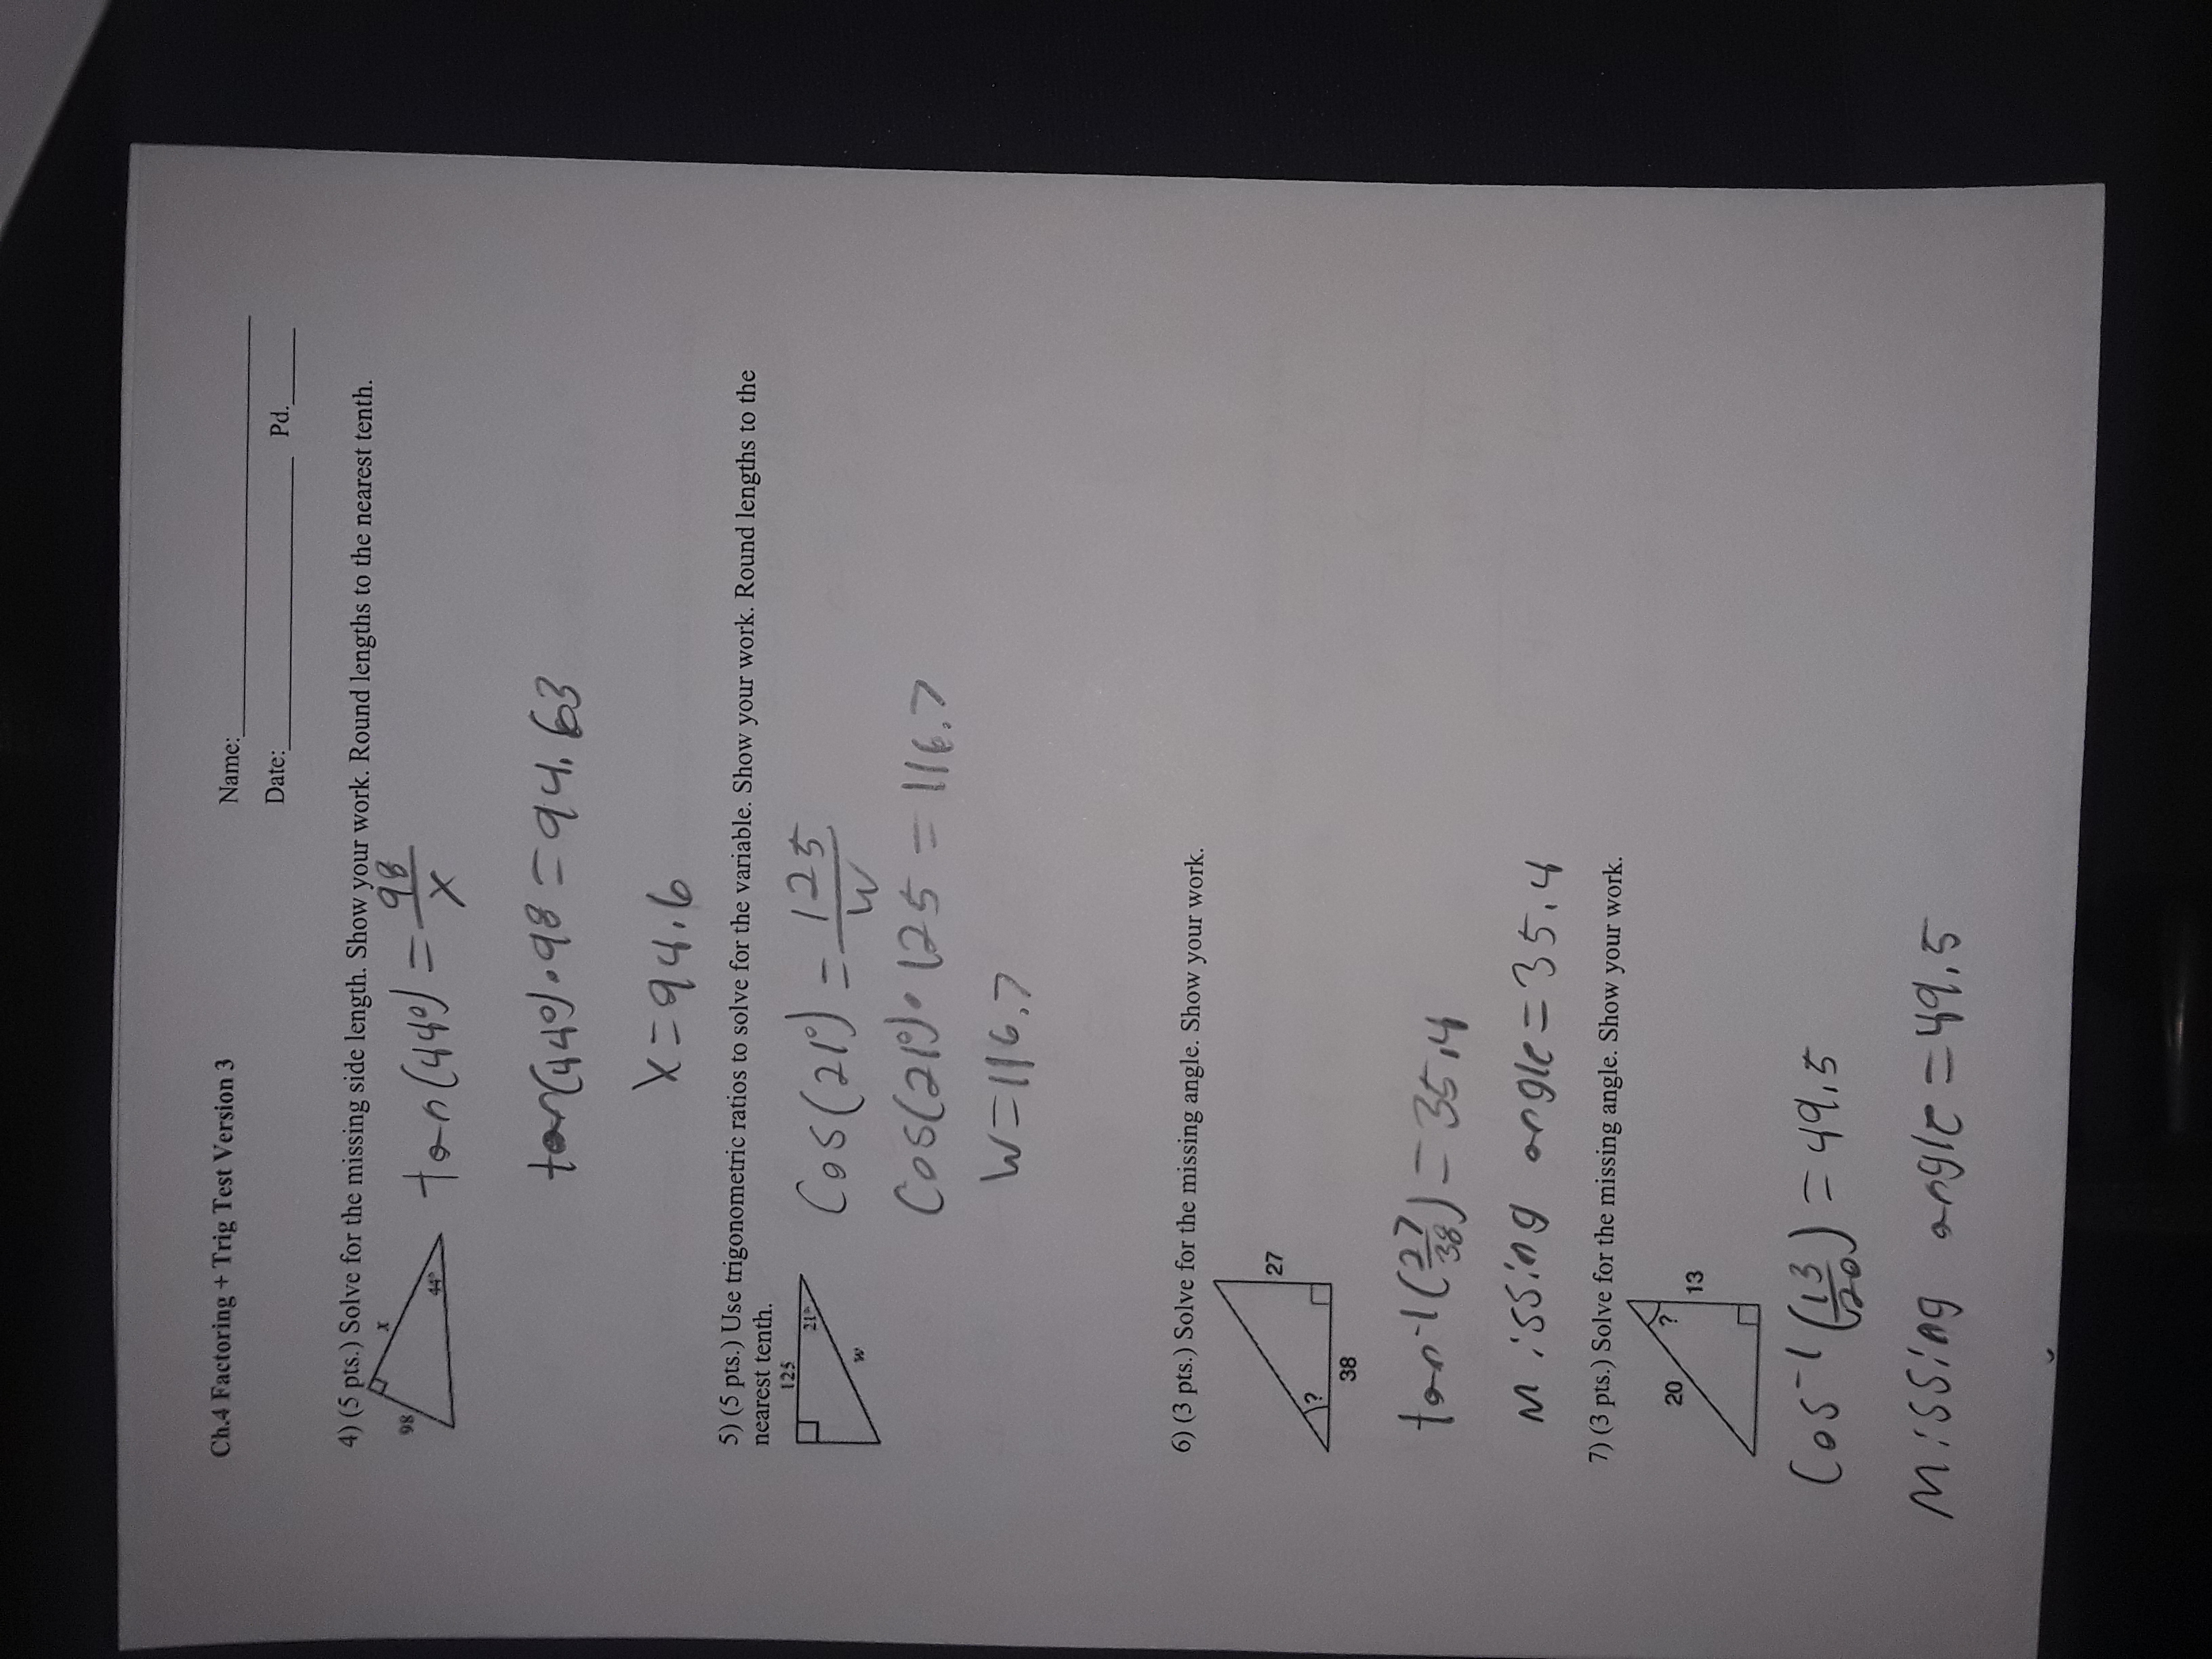 Ch.4 Factoring + Trig Test Version 3
Name:
Date: Pd.
4) (5 pts.) Solve for the missing side length. Show your work. Round lengths to the nearest tenth.
98 x 44°
tan(44°) = 98/x
tan(44°)·98 = 94.63
x=94.6
5) (5 pts.) Use trigonometric ratios to solve for the variable. Show your work. Round lengths to the
nearest tenth.
125
21°
w
Cos(21°) = 125/W
Cos(21°)· 125 = 116.7
W=116.7
6) (3 pts.) Solve for the missing angle. Show your work.
27
?
38
tan-1(27/38) = 35.4
Missing angle = 35.4
7) (3 pts.) Solve for the missing angle. Show your work.
20 ? 13
Cos-1(13/20) = 49.5
Missing angle = 49.5